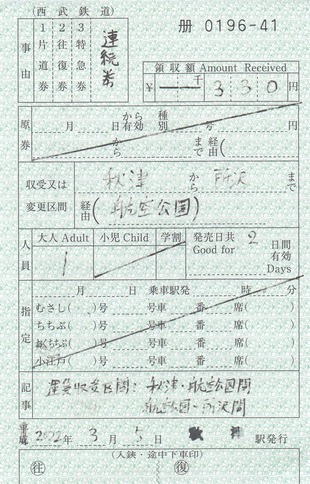 (西武鉄道) 冊 0196-41
事由 1片道券 2往復券 3特急券 連続券
領収額 Amount Received
¥ 千 330 円
原券 月 日から有効 種別 号 円
から まで 経由(
収受又は変更区間 秋津 から 所沢 まで
経由( 航空公園 )
人員 大人 Adult 小児 Child 学割 発売日共 Good for 2 日間有効 Days
1
指定 月 日 乗車駅発 時 分
むさし( )号 号車 番 席( )
ちちぶ( )号 号車 番 席( )
おくちちぶ( )号 号車 番 席( )
小江戸( )号 号車 番 席( )
記事 運賃収受区間: 秋津・航空公園間
航空公園・所沢間
平成 2022年 3月 5日 駅発行
(入鋏・途中下車印)
往 復